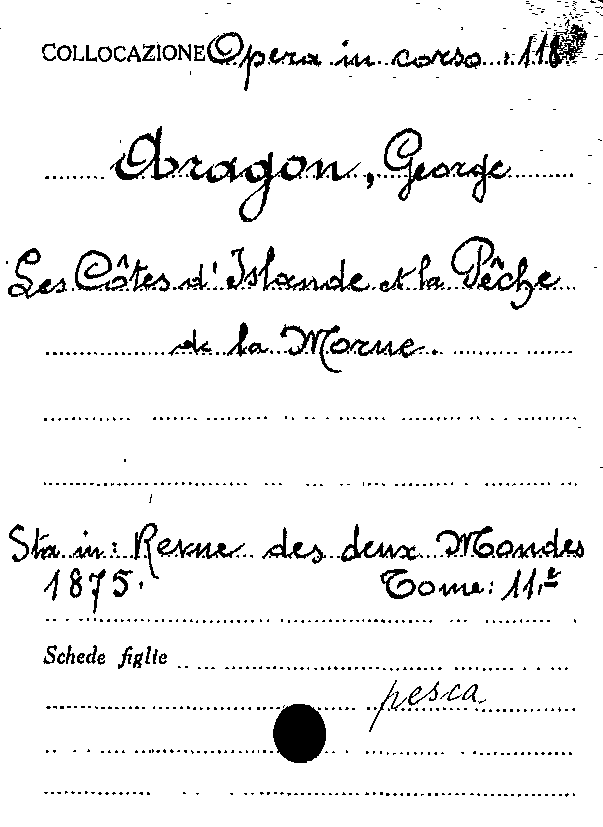 COLLOCAZIONE Opera in corso : 118
Aragon, George
Les Côtes d'Islande et la Pêche
de la Morue.
Sta in: Revue des deux Mondes
1875. Tome: 11.e
Schede figlie
pesca